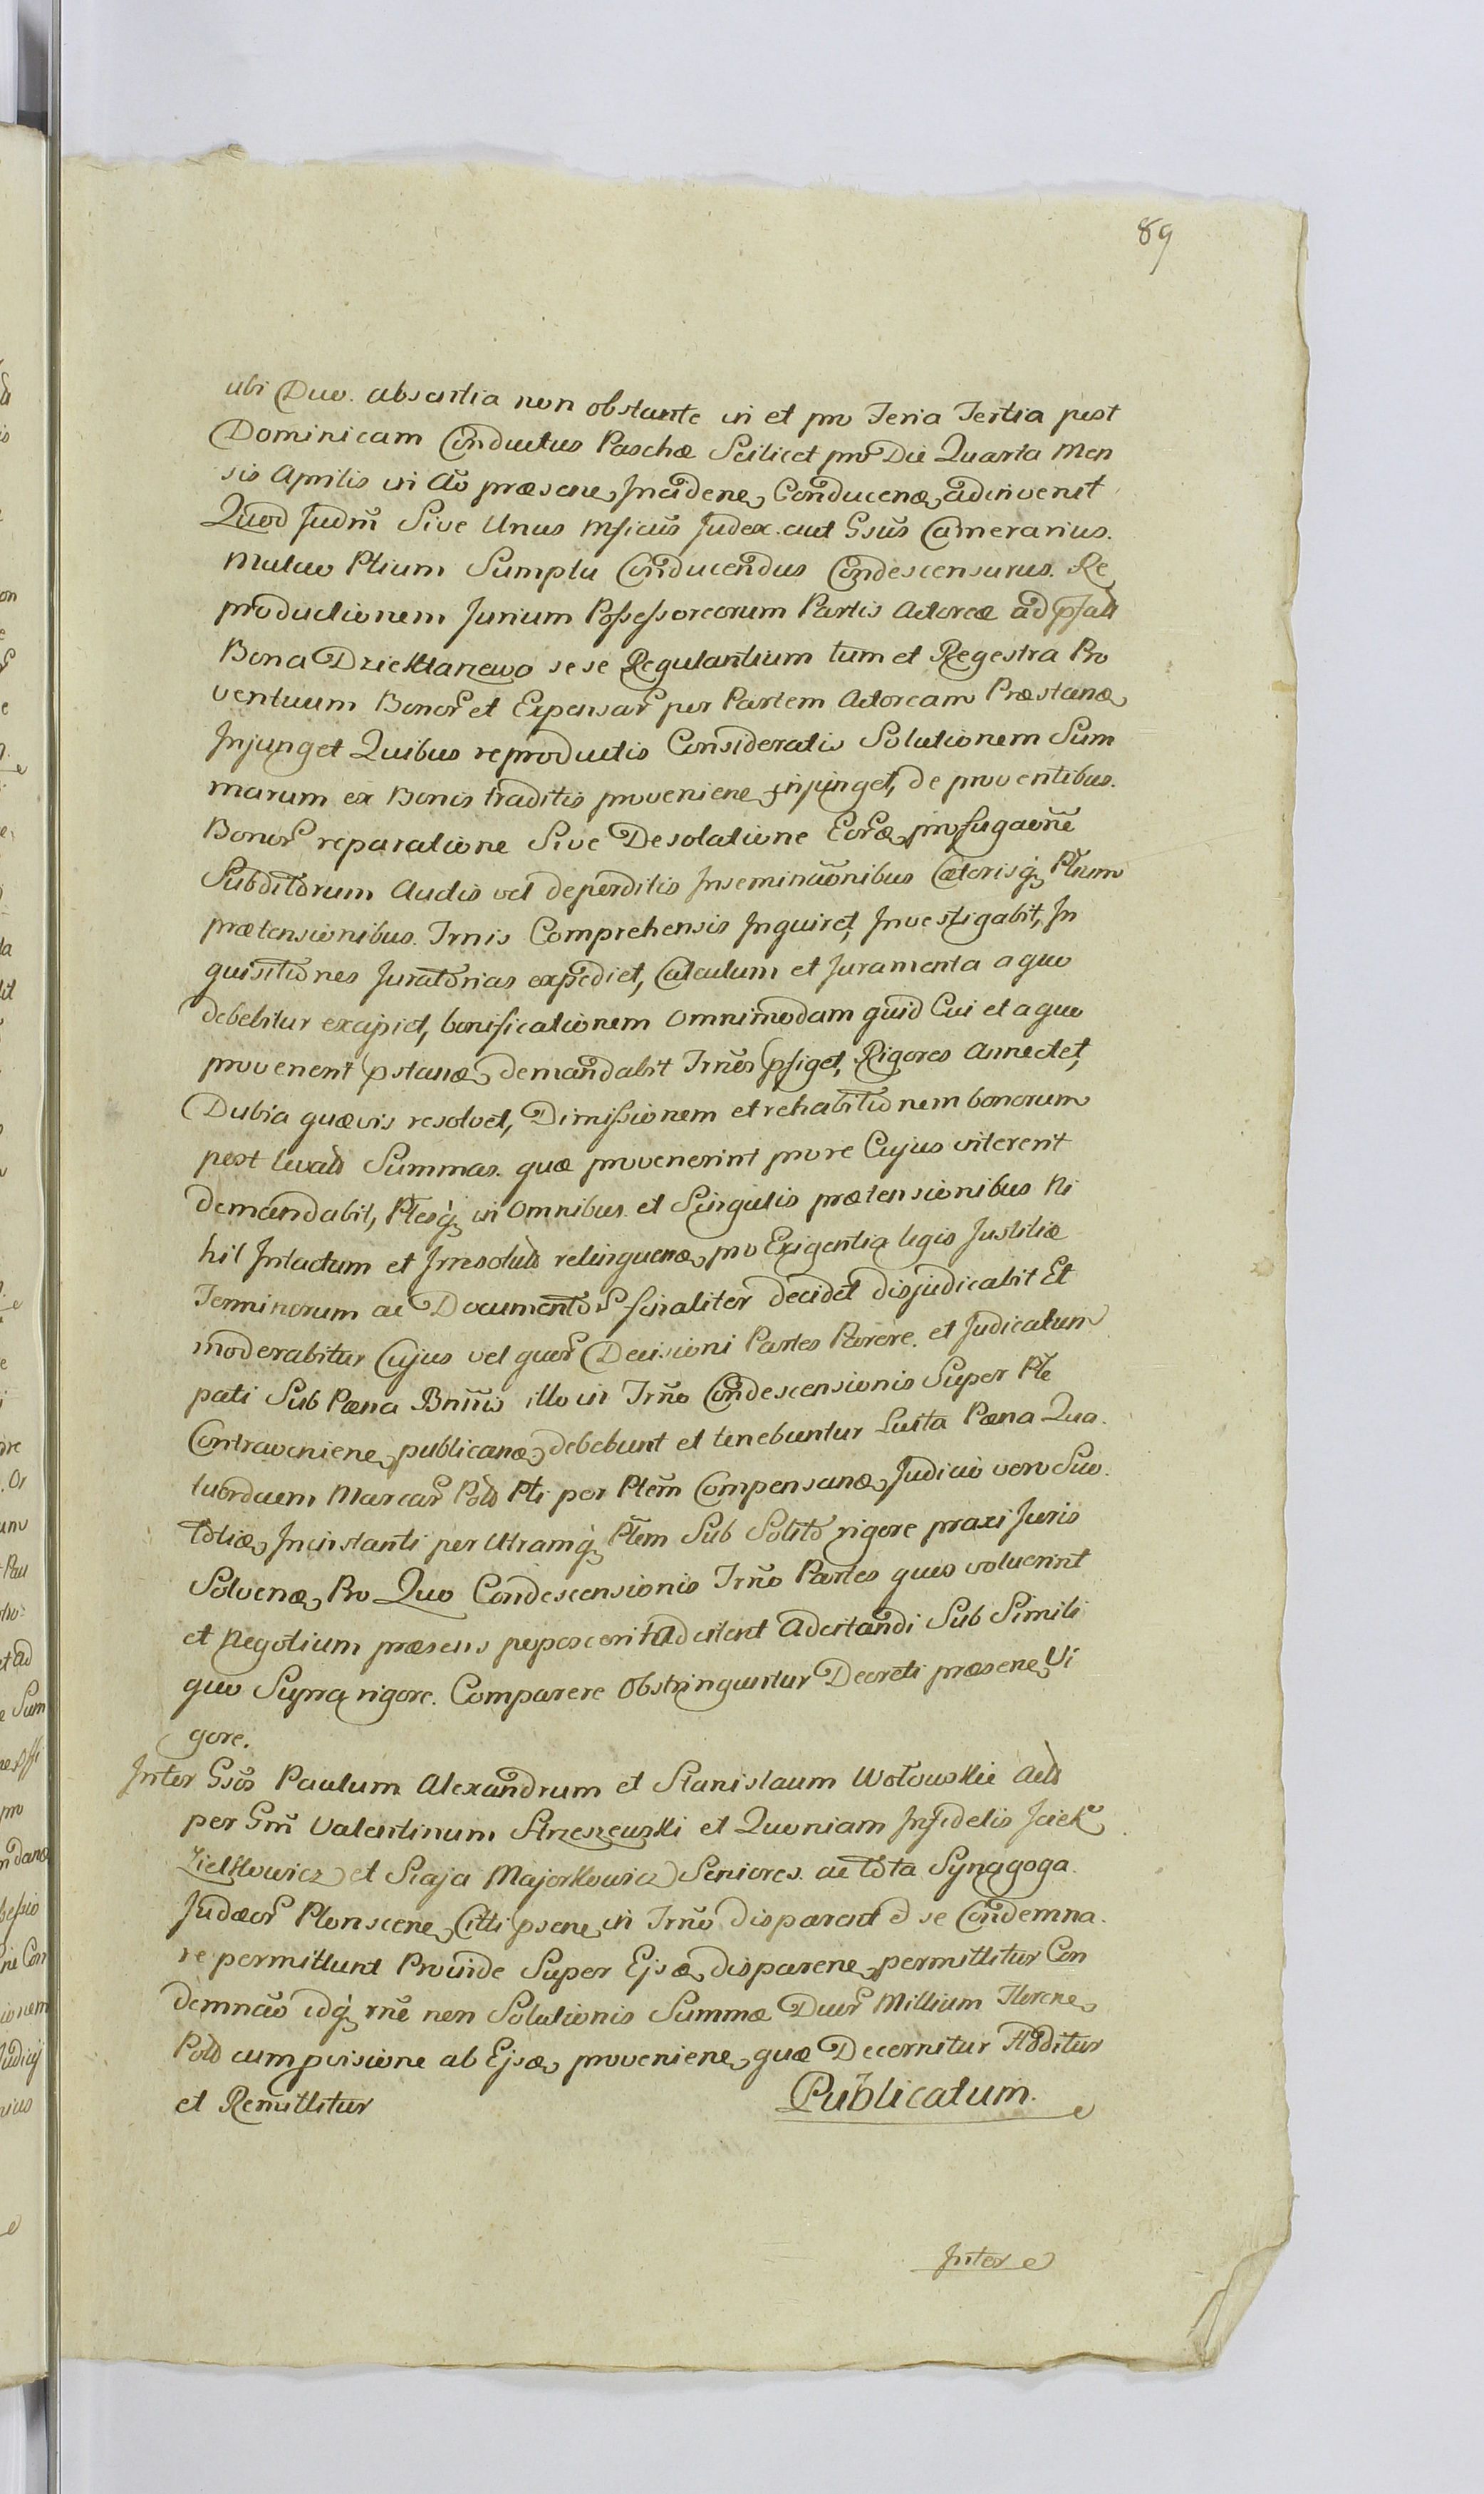 89
ubi Duo. absentia non obstante in et pro Feria Tertia post
Dominicam Conductus Paschæ Scilicet pro Die Quarta Men
sis Aprilis in Ao præsene Incidene Conducenæ adinvenit
Quod Judm Sive Unus Mficus Judex aut Gsus Camerarius.
Mutuo Ptium Sumptu Conducendus Condescensurus. Re
productionem Jurium Possessoreorum Partis Actoreæ ad pfatt
Bona Dziektarzewo sese Regulantium tum et Regestra Pro
ventuum Bonor et Expensar per Partem Actoream Præstanæ
Injunget Quibus reproductis Consideratis Solutionem Sum
marum ex Bonis traditis proveniene injunget, de proventibus.
Bonor reparatione Sive Desolatione Eoræ profugaone
Subditorum Auctis vel deperditis Inseminaonibus Cæterisq Ptium
prætensionibus. Trnis Comprehensis Inquiret, Investigabit, In
quisitiones Juratorias expediet, Calculum et Juramenta a quo
debebitur excipiet, bonificationem omnimodam quid Cui et a quo
provenerit pstanæ demandabit Trnos pfiget, Rigores Annectet,
Dubia quævis resolvet, Dimissionem et rehabitionem bonorum
post levatas Summas. quæ provenerint pro re Cujus interent
demandabit, Ptesq in Omnibus et Singulis prætensionibus Ni
hil Intactum et Irresolut relinquenæ pro Exigentia legis Justitiæ
Terminorum ac Documentor finaliter decidet disjudicabit Et
moderabitur Cujus vel quor Decisioni Partes Parere. et Judicatum
pati Sub Pæna Bnnis illo in Trno Condescensionis Super Pte
Contraveniene publicanæ debebunt et tenebuntur Luita Pæna Qua
tuordecim Marcar Pold Pti per Ptem Compensanæ Judicio vero Suo.
totiæ Incinstanti per Utramq Ptem Sub Solito rigore praxi Juris
Solvenæ, Pro Quo Condescensionis Trno Partes quos voluerint
et Negotium præsens poposcerit Adcitent Adcitandi Sub Simili
quo Supra rigore. Comparere Obstringuntur Decreti præsene Vi
gore.
Inter Gsos Paulum Alexandrum et Stanislaum Wołowskie Acts
per Gm Valentinum Strzeszewski et Quoniam Infidelis Jcek
Zielkowicz et Szaja Majorkowicz Seniores. ac tota Synagoga
Judæor Plonscene Citti psene in Trno disparent et se Condemna
re permittunt Proinde Super Ejsæ disparene permittitur Con
demnao idq rne non Solutionis Summæ Duor Millium Florene
Pold cum pvisione ab Ejsæ proveniene quæ Decernitur Additur
et Remittitur Publicatum.
Inter